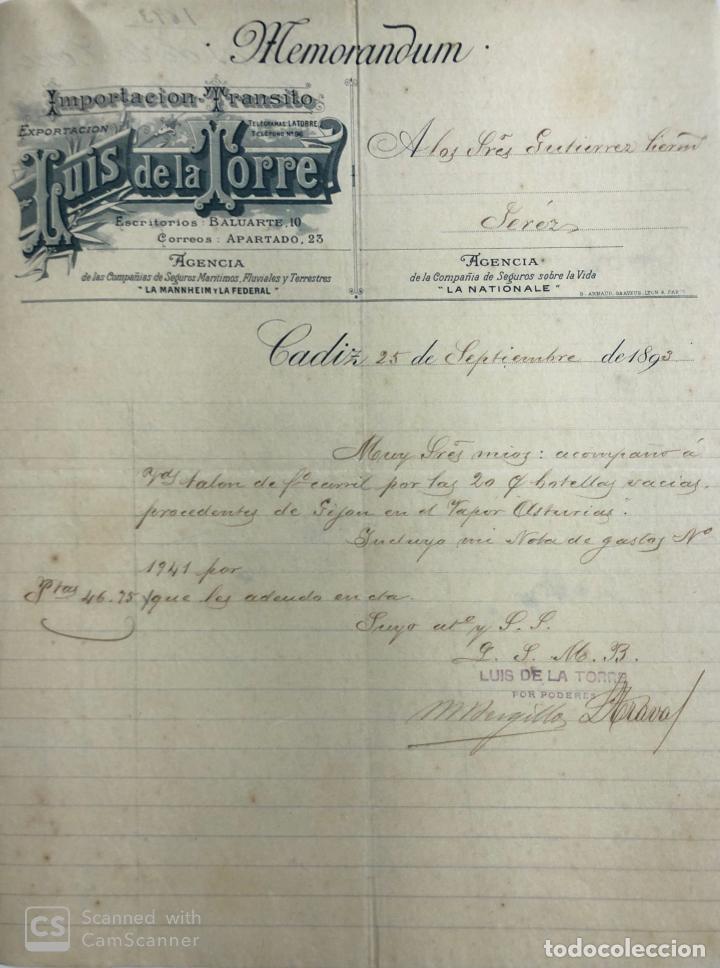 Memorandum
Importacion-Transito
EXPORTACION
TELEGRAMAS: LATORRE
TELÉFONO Nº 96
Luis de la Torre
Escritorios: BALUARTE, 10
Correos: APARTADO, 23
AGENCIA
de las Compañias de Seguros Maritimos, Fluviales y Terrestres
"LA MANNHEIM Y LA FEDERAL"
A los Sres Gutierrez herm
Jeréz
AGENCIA
de la Compañia de Seguros sobre la Vida
"LA NATIONALE"
Cadiz 25 de Septiembre de 1893
Muy Sres mios: acompaño á
Vds talon de fo carril por las 20 c/ botellas vacias
procedentes de Gijon en el Vapor "Asturias".
Incluyo mi Nota de gastos Nº
1941 por
Ptas 46.75 que les adeudo en cta
Suyo atº y S. S.
Q. S. M. B.
LUIS DE LA TORRE
POR PODERES
CS
Scanned with
CamScanner
todocoleccion